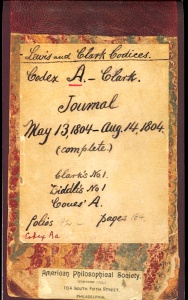 Lewis and Clark Codices.
Codex A. - Clark.
Journal
May 13, 1804 - Aug. 14, 1804.
(complete)
Clark's No 1.
Biddle's No 1
Coues' A.
folios pages 184.
Codex Aa
American Philosophical Society
104 SOUTH FIFTH STREET,
PHILADELPHIA